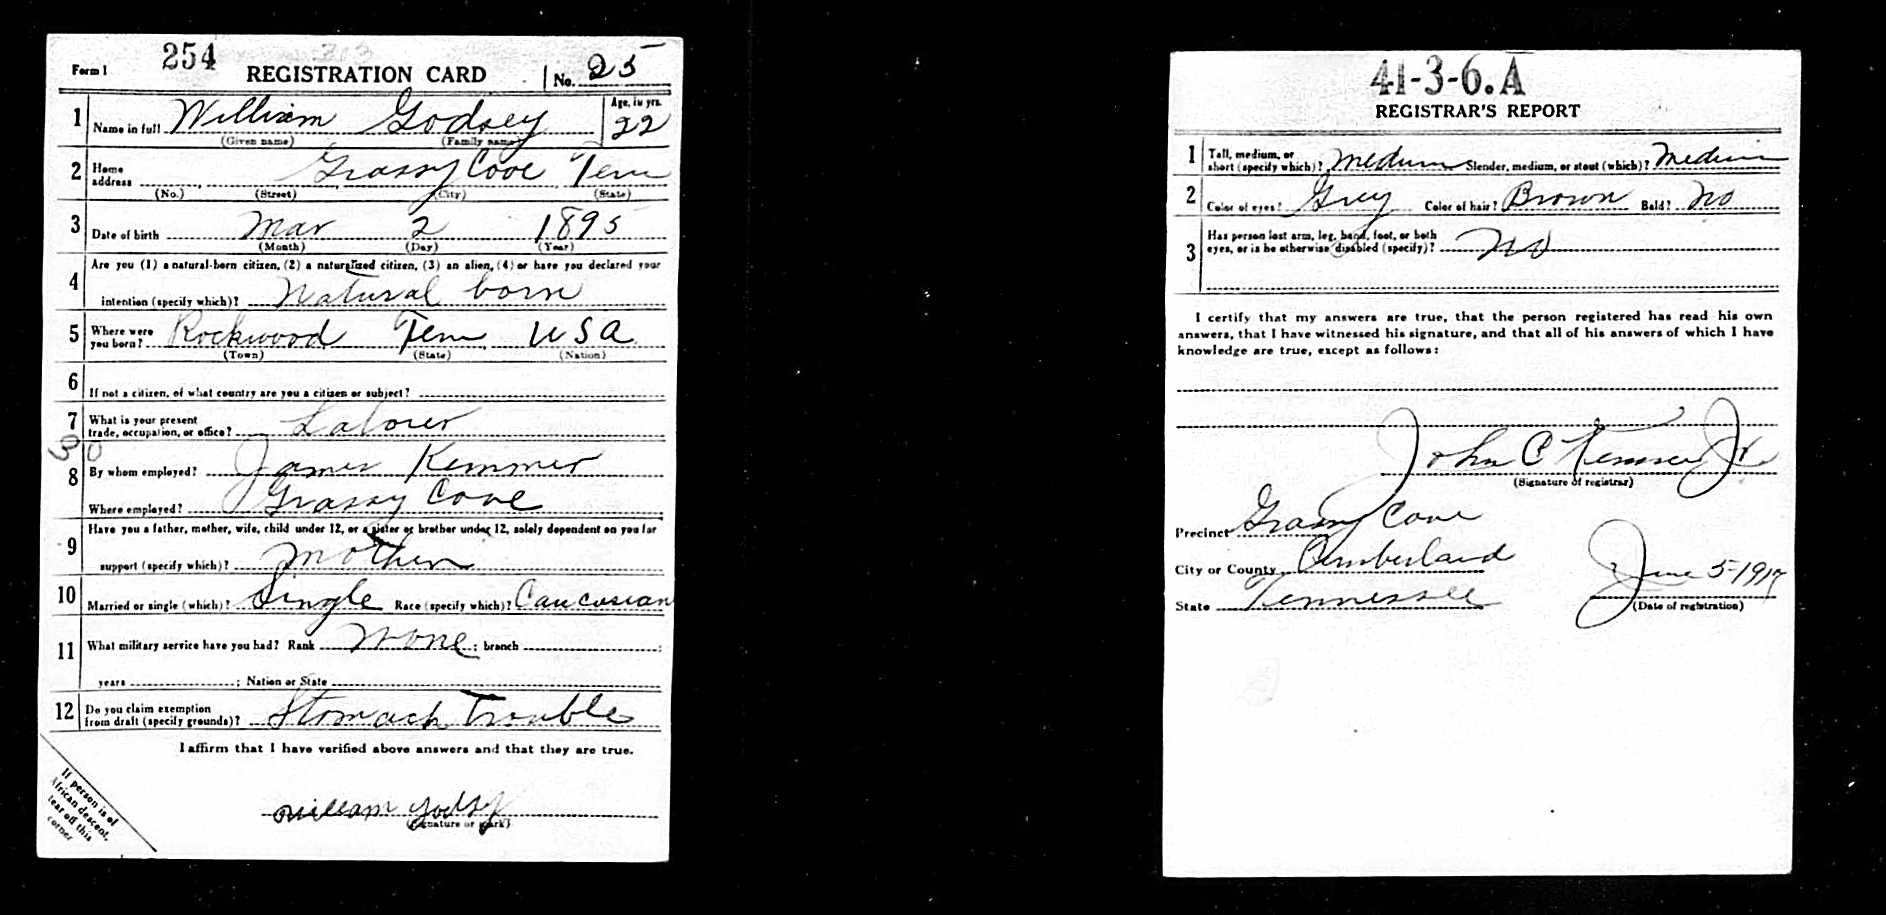 Form 1 254 REGISTRATION CARD No. 25
1 Name in full William Godsey Age, in yrs. 22
(Given name) (Family name)
2 Home address Grassy Cove Tenn
(No.) (Street) (City) (State)
3 Date of birth Mar 2 1895
(Month) (Day) (Year)
4 Are you (1) a natural-born citizen, (2) a naturalized citizen, (3) an alien, (4) or have you declared your
intention (specify which)? Natural born
5 Where were you born? Rockwood Tenn USA
(Town) (State) (Nation)
6 If not a citizen, of what country are you a citizen or subject?
7 What is your present trade, occupation, or office? Laborer
8 By whom employed? James Kemmer
Where employed? Grassy Cove
9 Have you a father, mother, wife, child under 12, or a sister or brother under 12, solely dependent on you for
support (specify which)? Mother
10 Married or single (which)? Single Race (specify which)? Caucasian
11 What military service have you had? Rank None; branch ;
years ; Nation or State
12 Do you claim exemption from draft (specify grounds)? Stomach Trouble
I affirm that I have verified above answers and that they are true.
William Godsy
(Signature or mark)
If person is of
African descent,
tear off this
corner
41-3-6.A
REGISTRAR'S REPORT
1 Tall, medium, or short (specify which)? Medium Slender, medium, or stout (which)? Medium
2 Color of eyes? Grey Color of hair? Brown Bald? No
3 Has person lost arm, leg, hand, foot, or both
eyes, or is he otherwise disabled (specify)? No
I certify that my answers are true, that the person registered has read his own
answers, that I have witnessed his signature, and that all of his answers of which I have
knowledge are true, except as follows:
John C Kemmer Jr
(Signature of registrar)
Precinct Grassy Cove
City or County Cumberland
State Tennessee June 5-1917
(Date of registration)